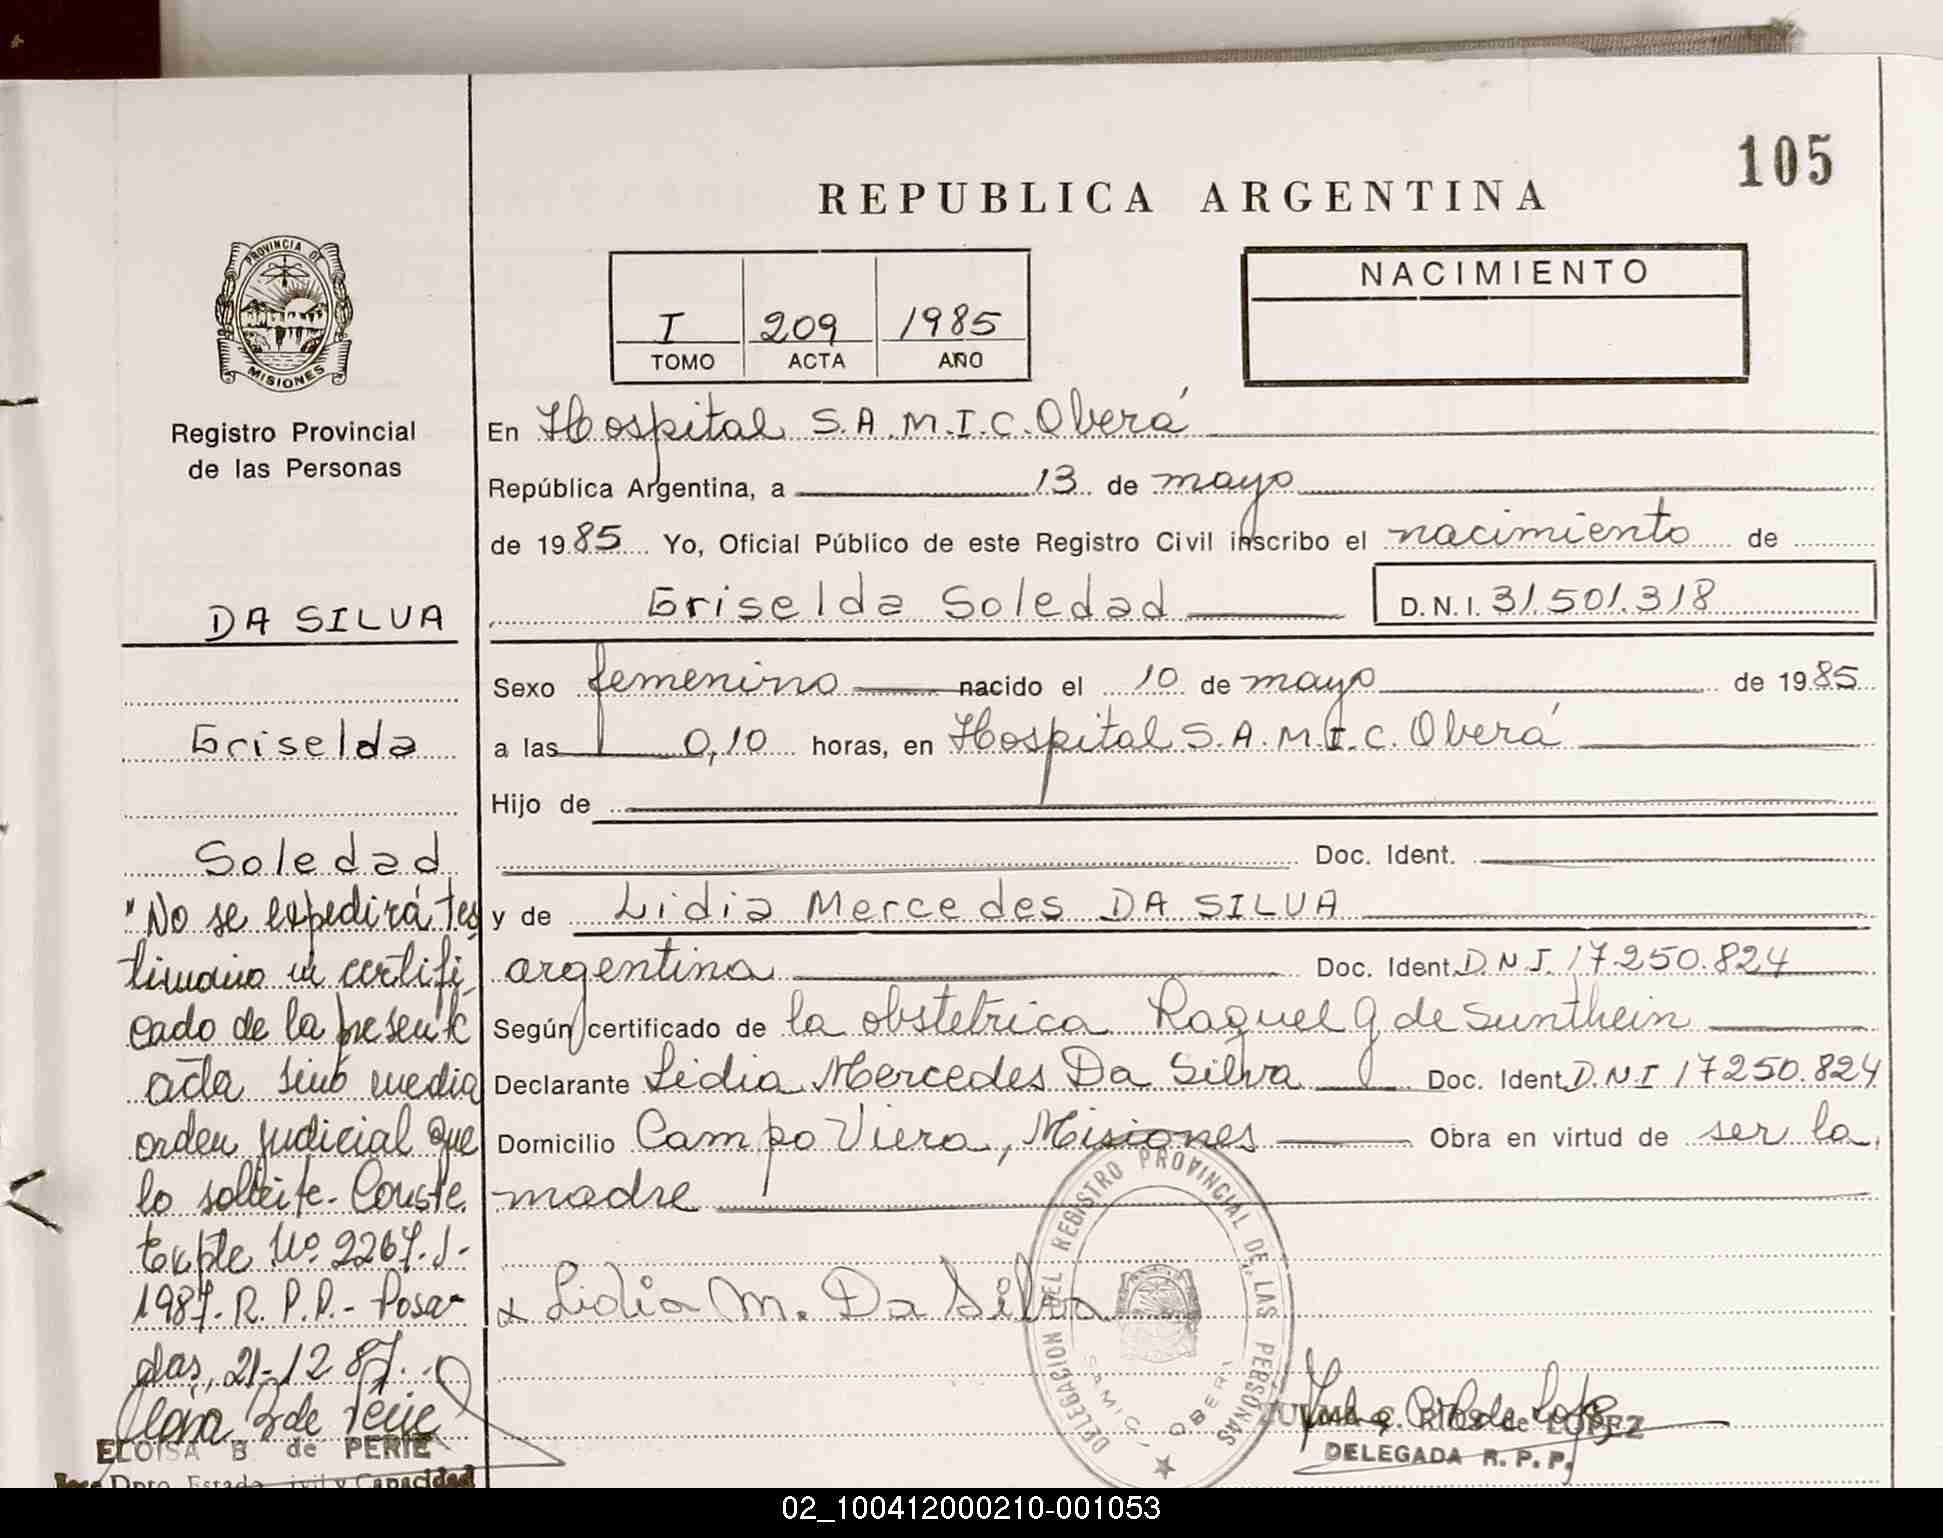 105
REPUBLICA ARGENTINA
PROVINCIA DE
MISIONES
Registro Provincial
de las Personas
I 209 1985
TOMO ACTA AÑO
NACIMIENTO
En Hospital S.A.M.I.C. Oberá
República Argentina, a 13 de mayo
de 1985 Yo, Oficial Público de este Registro Civil inscribo el nacimiento de
Griselda Soledad D.N.I. 31.501.318
Sexo femenino nacido el 10 de mayo de 1985
a las 0,10 horas, en Hospital S.A.M.I.C. Oberá
Hijo de
Doc. Ident.
y de Lidia Mercedes DA SILVA
argentina Doc. Ident. D.N.I. 17.250.824
Según certificado de la obstetrica Raquel G de Sunthein
Declarante Lidia Mercedes Da Silva Doc. Ident. D.N.I 17250.824
Domicilio Campo Viera, Misiones Obra en virtud de ser la
madre
x Lidia M. Da Silva
DELEGACION DEL REGISTRO PROVINCIAL DE LAS PERSONAS
SAMIC, OBERA
ZULMA C. RIOS de LOPEZ
DELEGADA R. P. P.
DA SILVA
Griselda
Soledad
"No se expedirá tes
timonio ni certifi
cado de la presente
acta sino media
orden judicial que
lo solicite. Conste
Expte Nº 2267.J-
1987. R. P. P. - Posa-
das, 21-12 87.
ELOISA B de PERIE
Dpto. Estado Civil y Capacidad
02_100412000210-001053